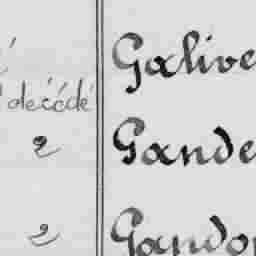 Galive
décédé
2 Gande
2 Gando